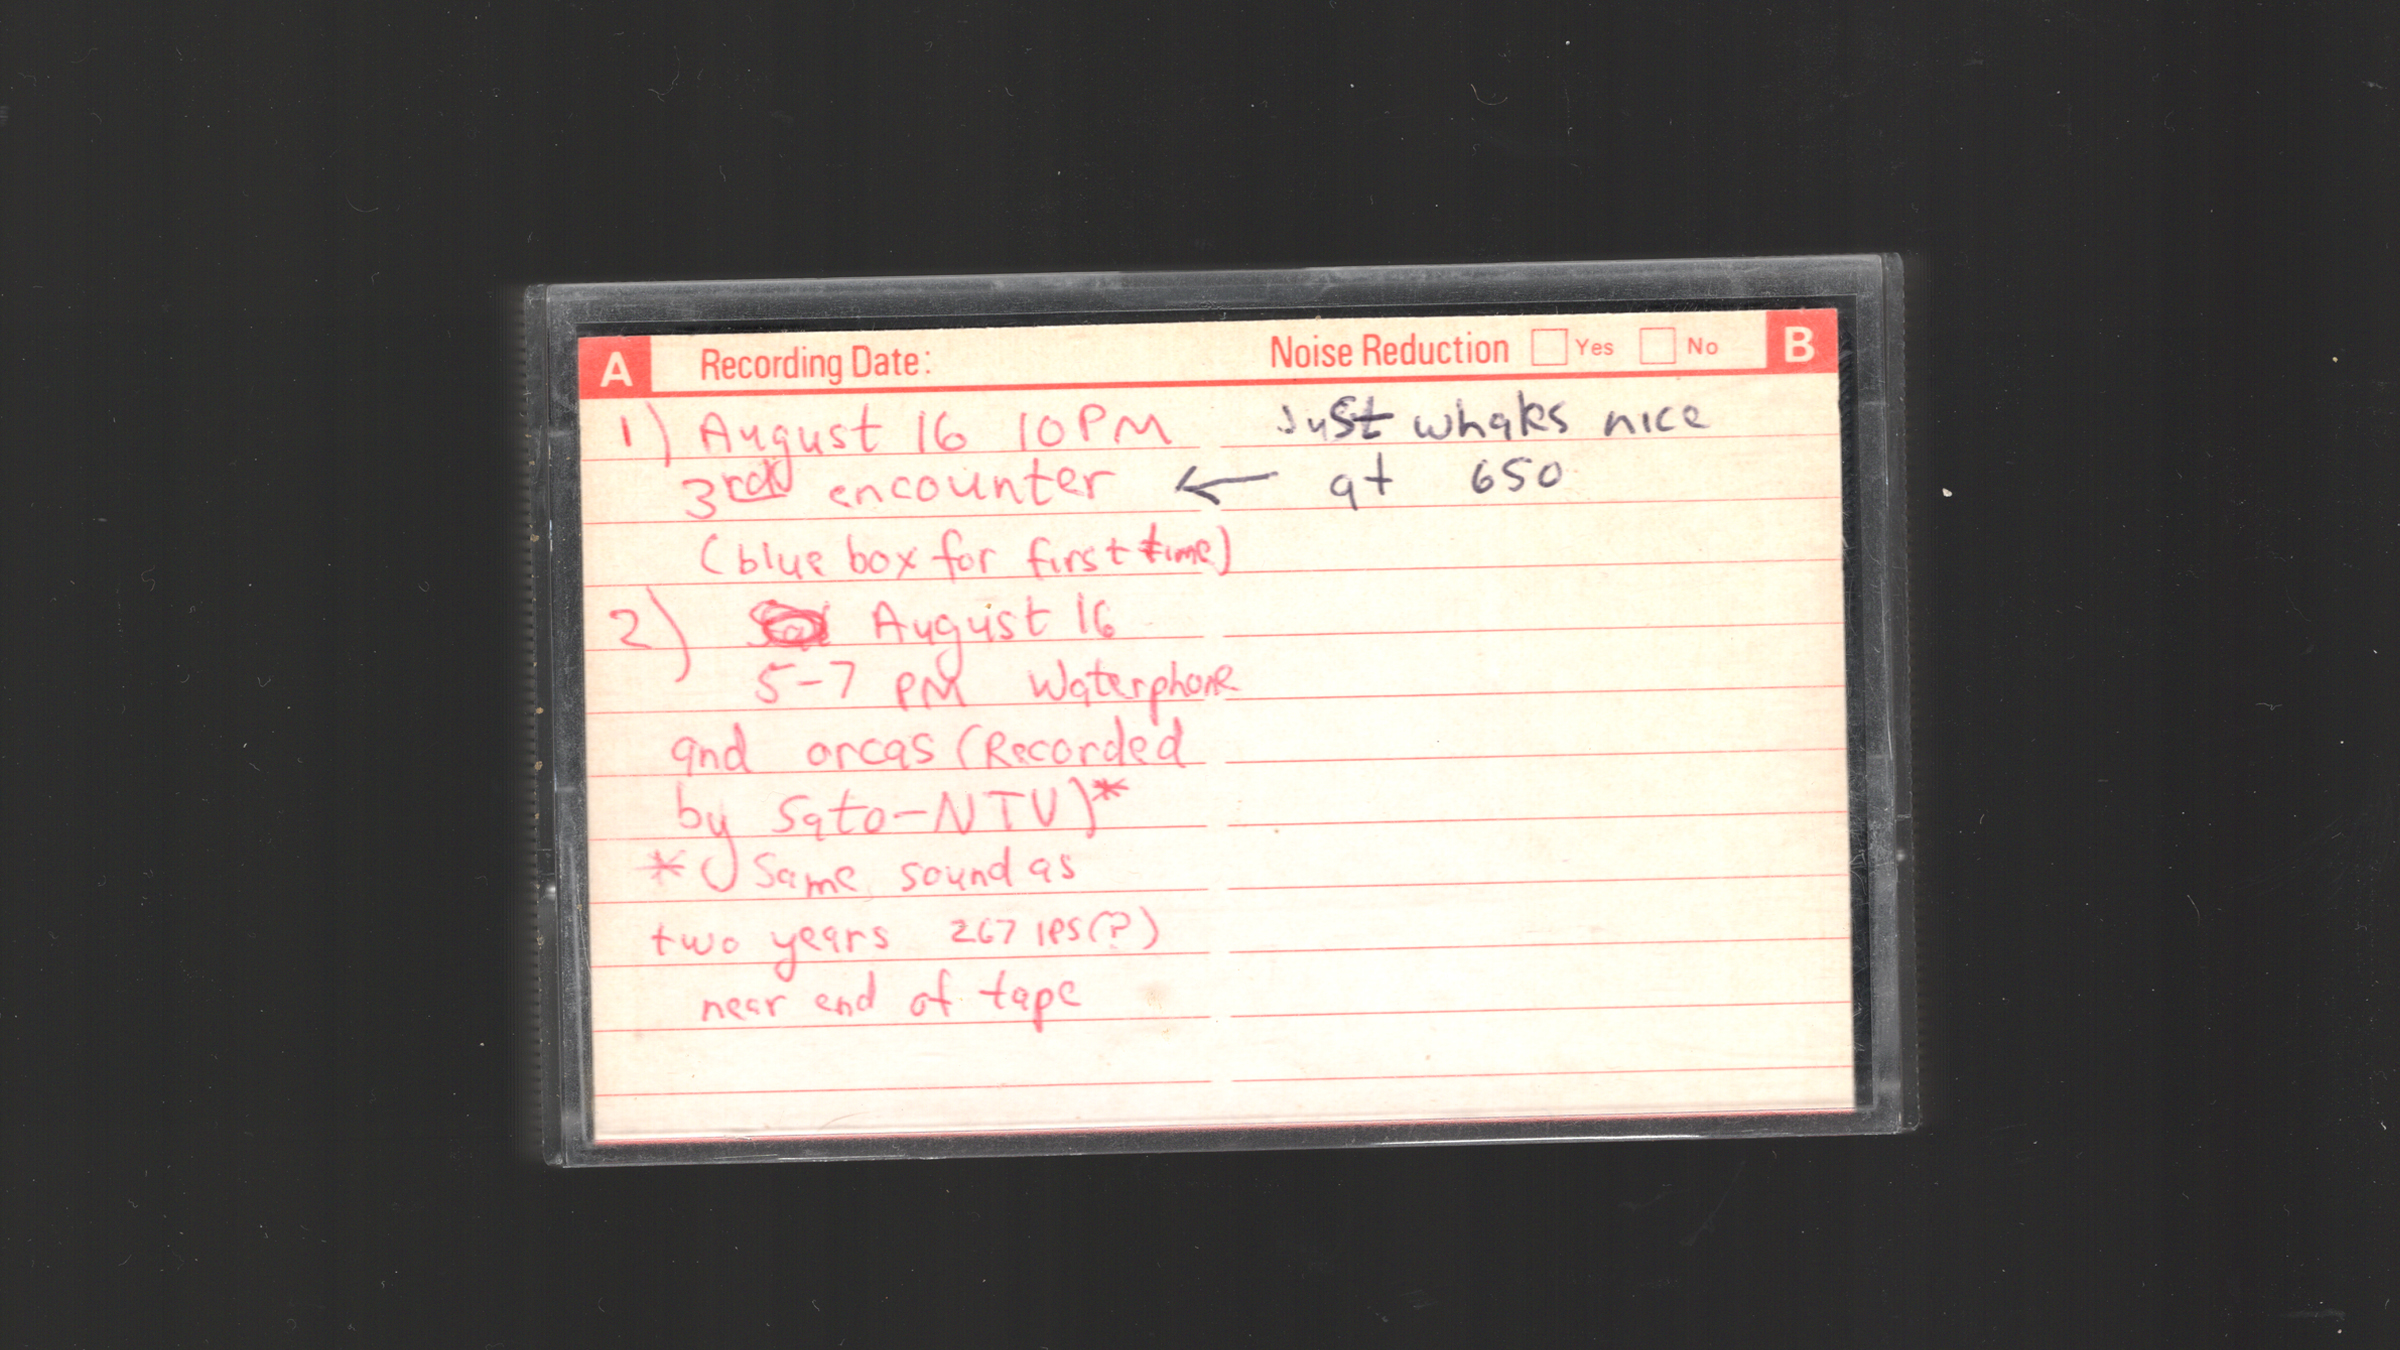 A Recording Date: Noise Reduction Yes No B
1) August 16 10PM
Just whales nice
3rd encounter ← at 650
(blue box for first time)
2) August 16
5-7 PM Waterphone
and orcas (Recorded
by Sato-NTV)*
* Same sound as
two years 267 IPS(?)
near end of tape